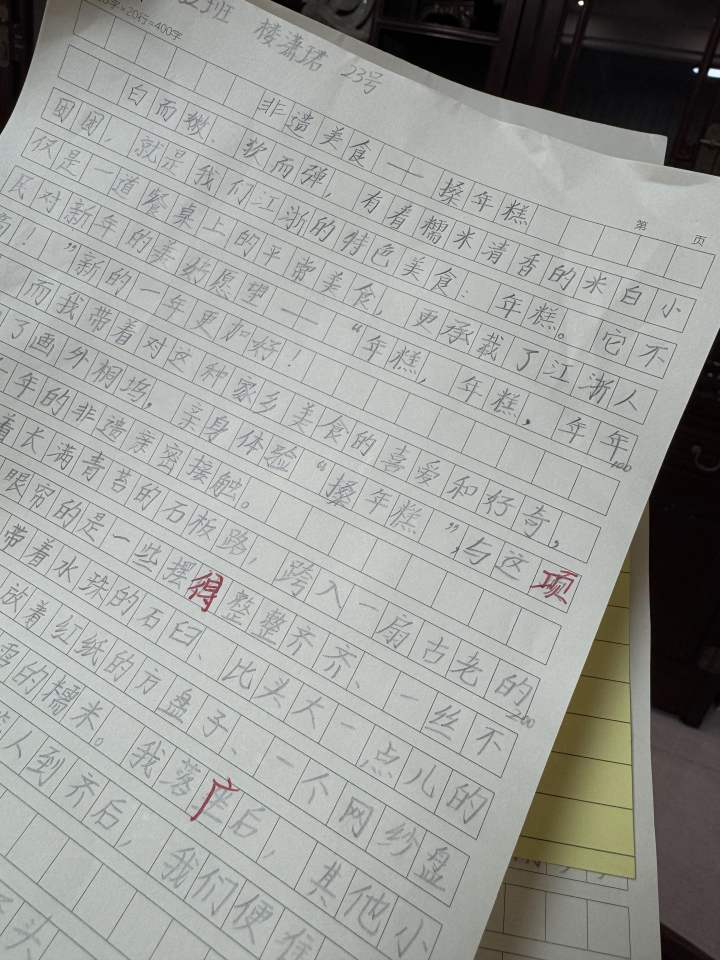 20行=400字
班 楼潇珺 23号
第 页
非遗美食——搡年糕
白而嫩、软而弹，有着糯米清香的米白小
团团，就是我们江浙的特色美食：年糕。它不
仅是一道餐桌上的平常美食，更承载了江浙人
民对新年的美好愿望——“年糕，年糕，年年
高！”新的一年更加好！
100
而我带着对这种家乡美食的喜爱和好奇，
了画外桐坞，亲身体验“搡年糕”，与这项
年的非遗亲密接触。
着长满青苔的石板路，跨入一扇古老的
眼帘的是一些摆得整整齐齐、一丝不
200
带着水珠的石臼、比头大一点儿的
放着红纸的方盘子、一个网纱盘
雪的糯米。我落座后，其他小
人到齐后，我们便
头